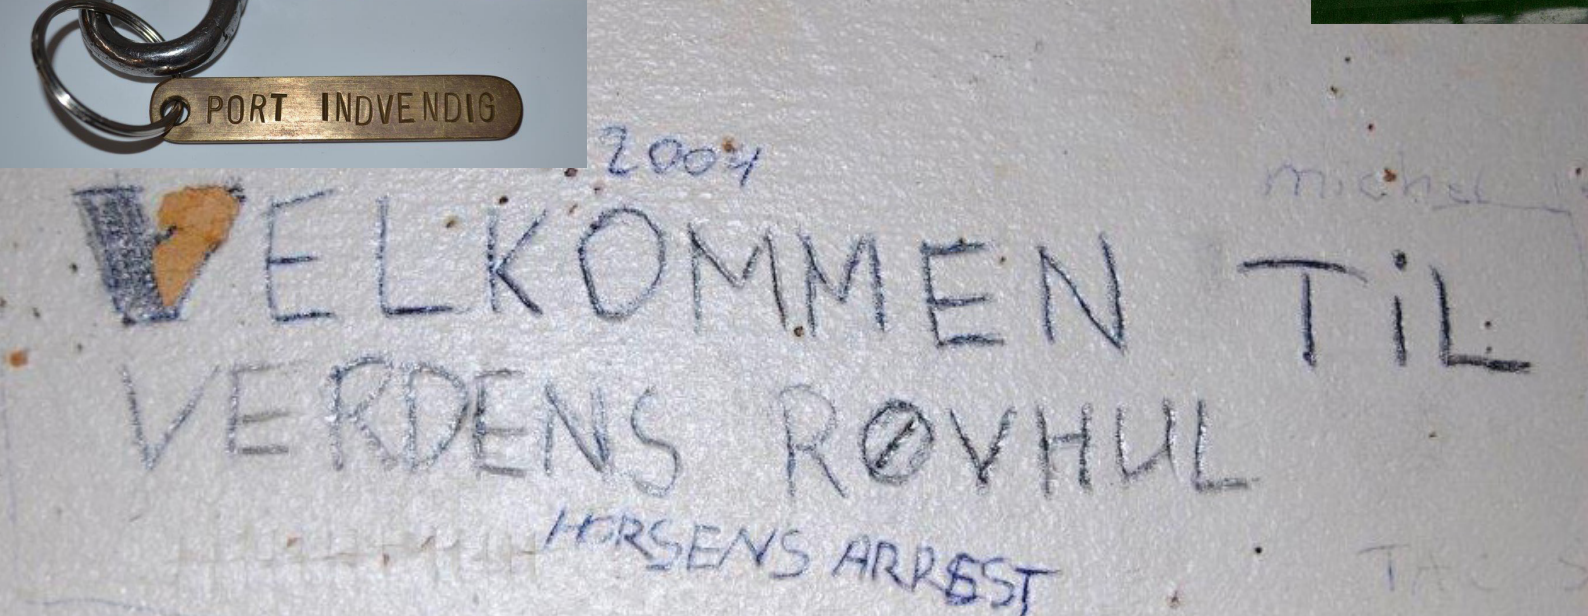 PORT INDVENDIG
2004
michel
VELKOMMEN TiL
VERDENS RØVHUL
HORSENS ARREST